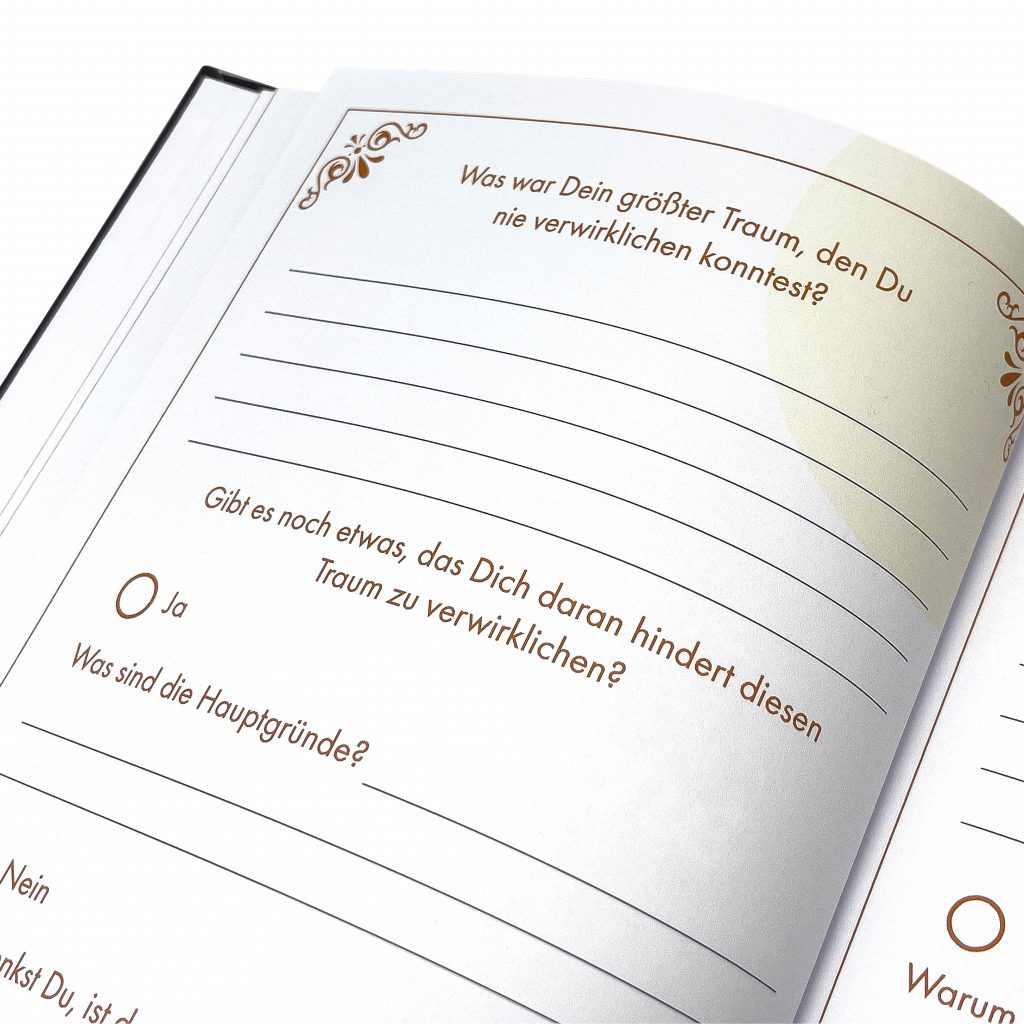 Was war Dein größter Traum, den Du
nie verwirklichen konntest?
Gibt es noch etwas, das Dich daran hindert diesen
Traum zu verwirklichen?
Ja
Was sind die Hauptgründe?
Nein
Du, ist
Warum